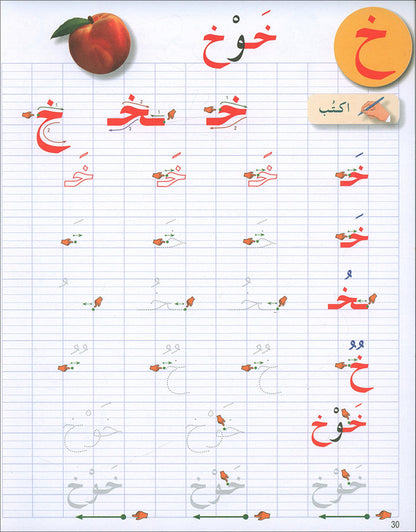 خ خَوْخ
اكتُب
خـ ـخـ خ
خَـ خَـ خَـ خَـ
خَـ خَـ خَـ
ـخُـ ـخُـ ـخُـ
خٌ خٌ خٌ
خَوْخ خَوْخ خَوْخ
خَوْخ خَوْخ خَوْخ
30